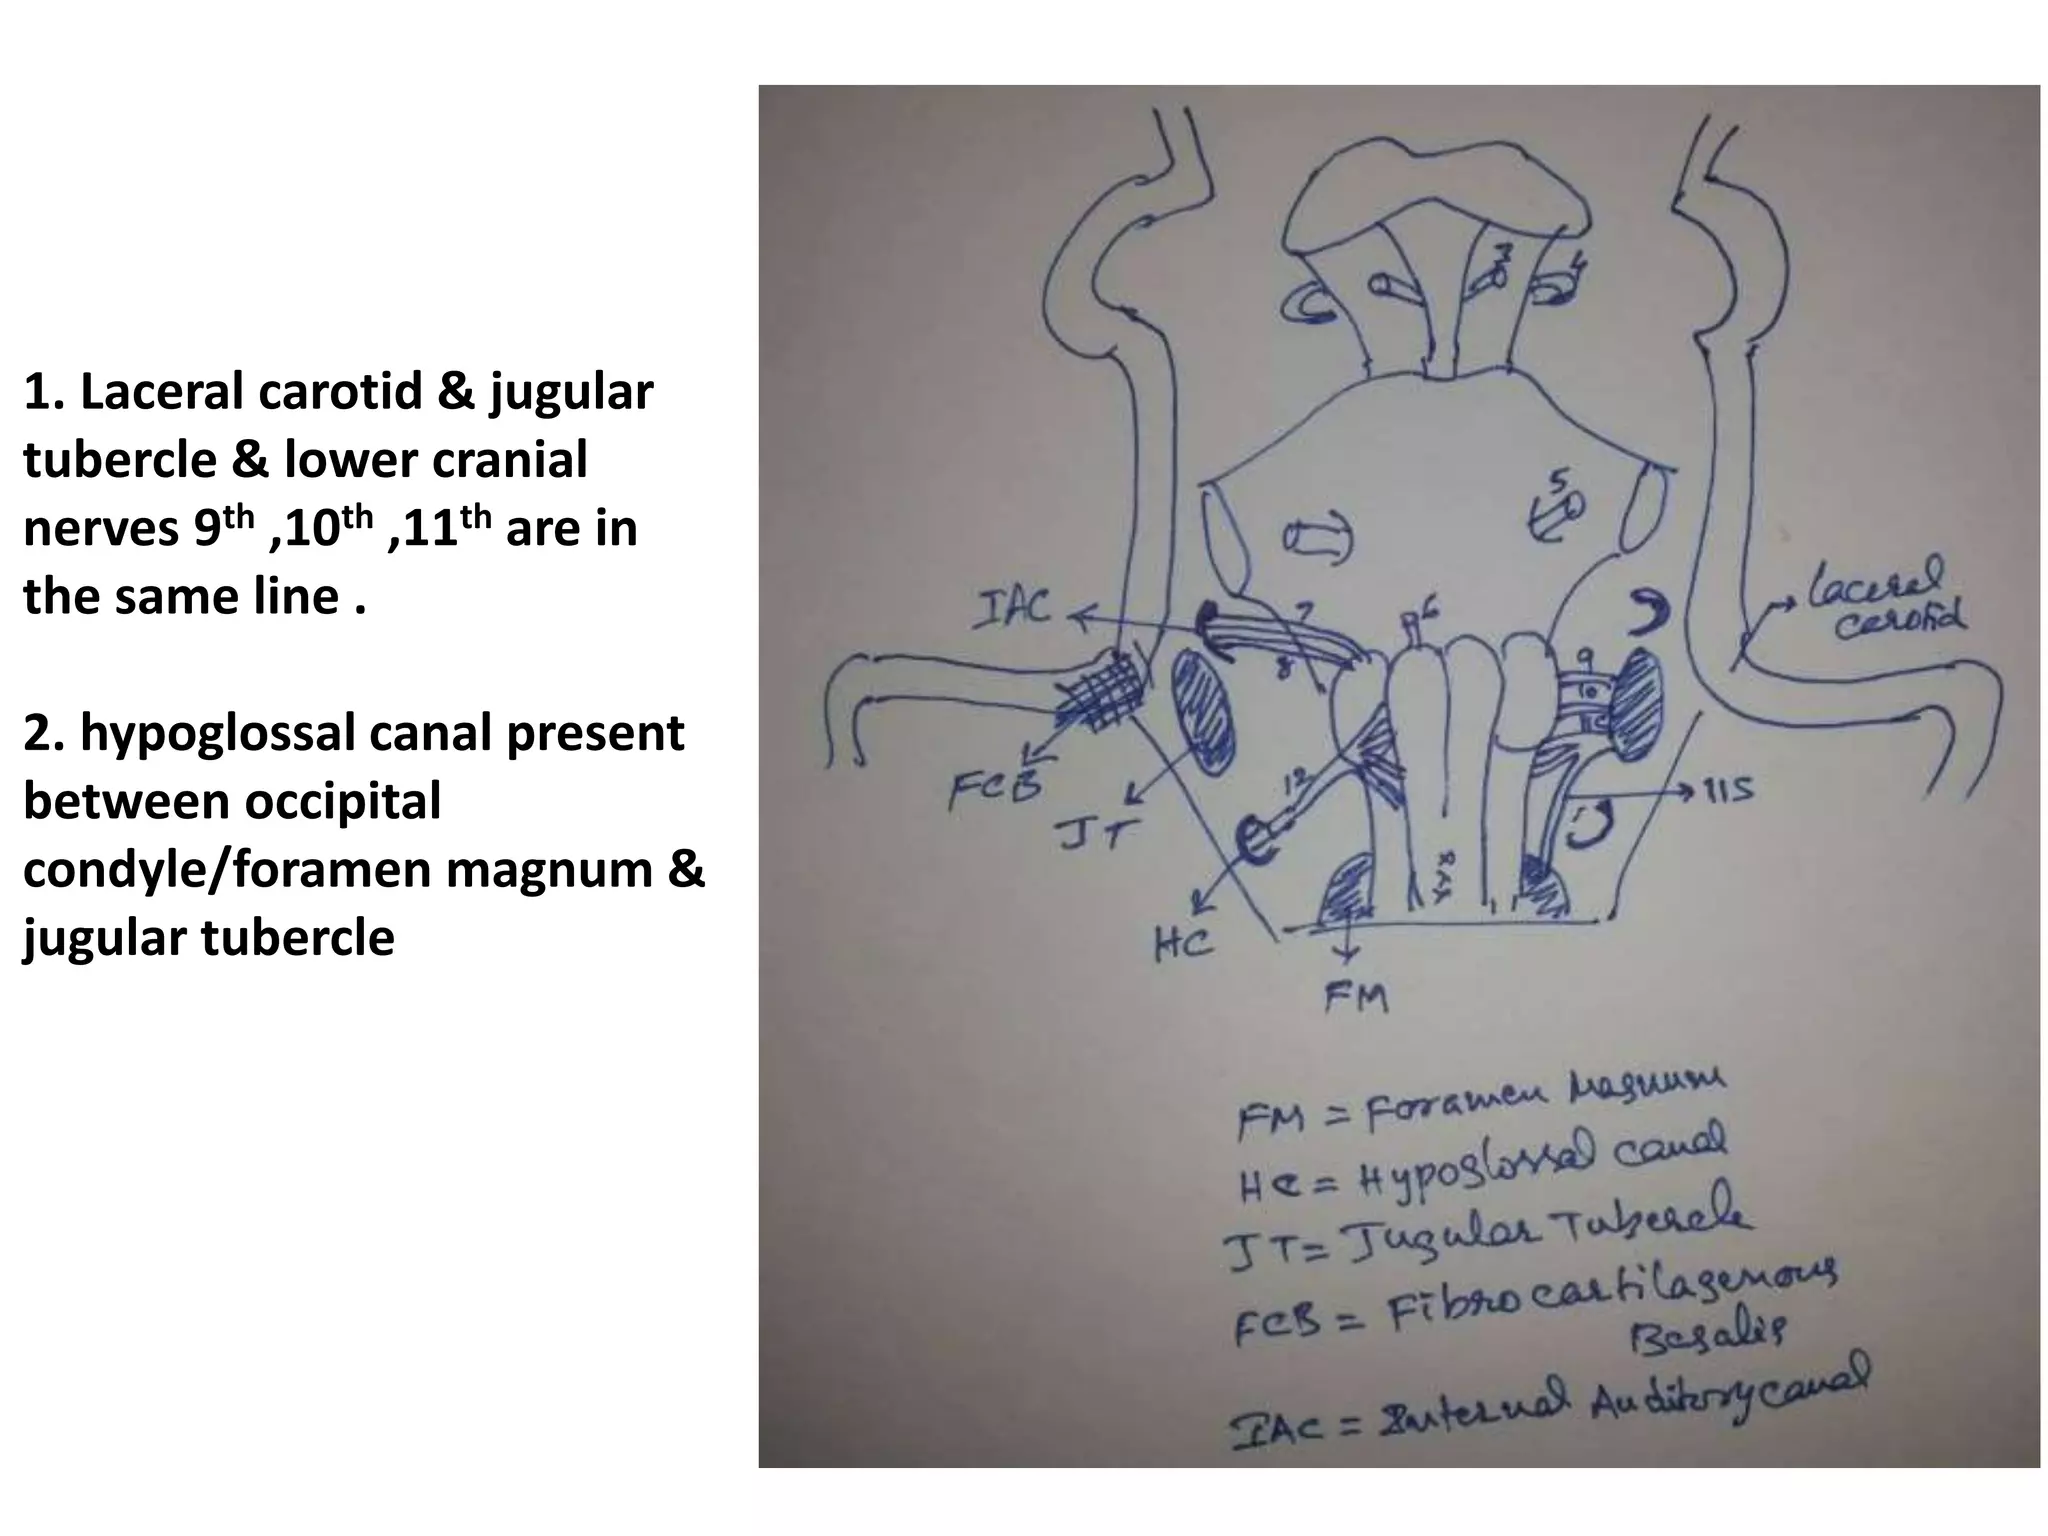 1. Laceral carotid & jugular
tubercle & lower cranial
nerves 9th ,10th ,11th are in
the same line .
2. hypoglossal canal present
between occipital
condyle/foramen magnum &
jugular tubercle
3
4
5
IAC
7
6
8
Laceral
carotid
9
10
11C
FCB
JT
12
11S
HC
FM
FM = Foramen Magnum
HC = Hypoglossal canal
JT = Jugular Tubercle
FCB = Fibrocartilagenous
Basalis
IAC = Internal Auditory canal